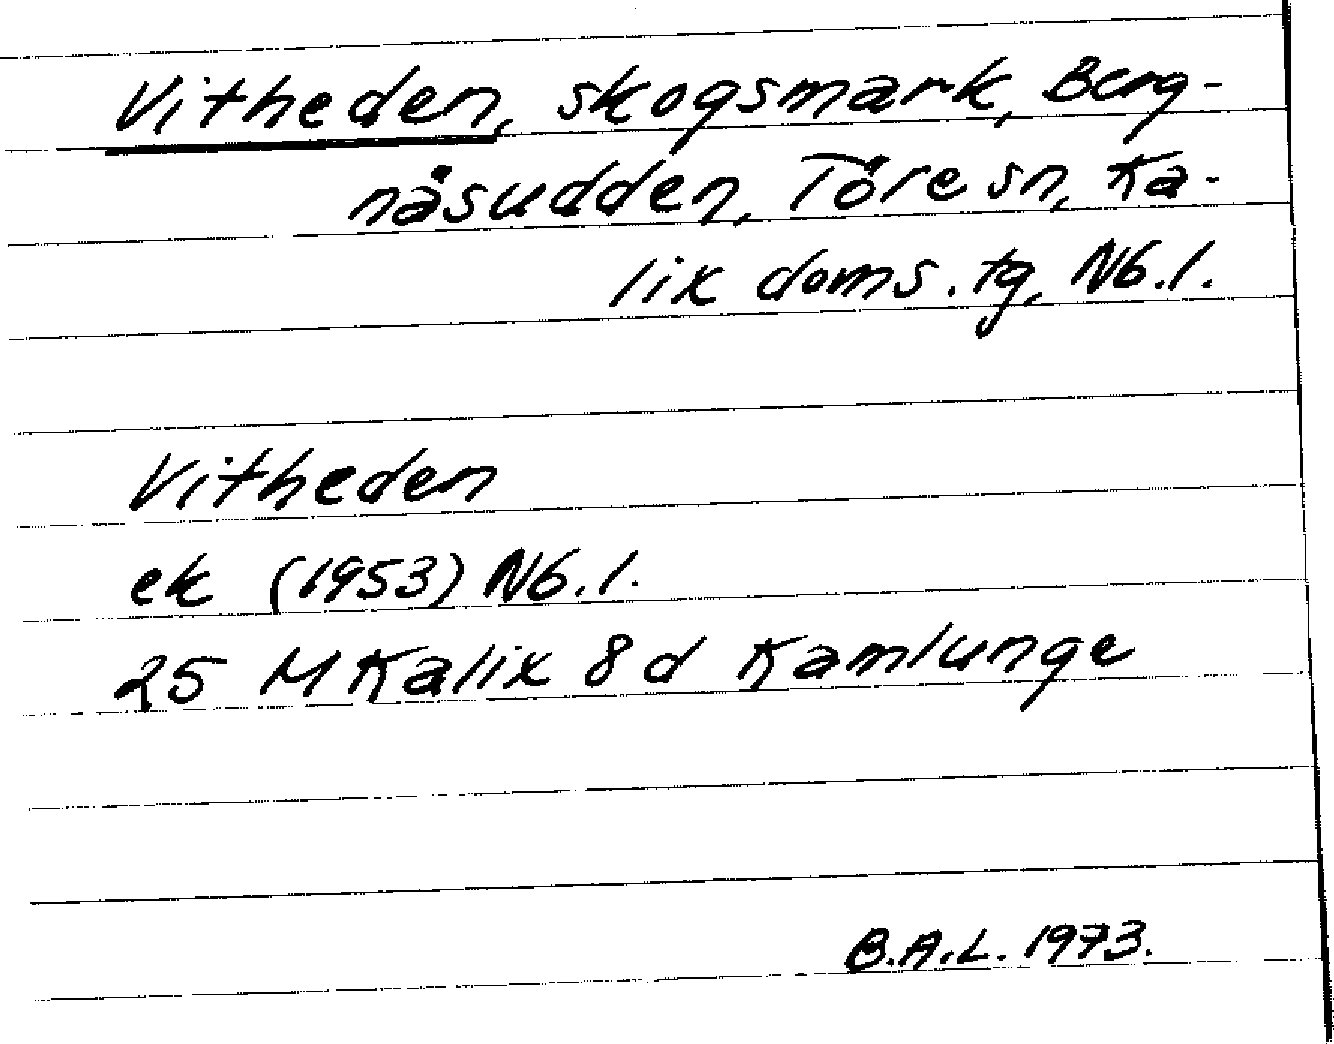 Vitheden, skogsmark, Berg-
näsudden, Töre sn, Ka-
lix doms. tg, Nb. l.
Vitheden
ek (1953) Nb. l.
25 M Kalix 8 d Kamlunge
B.A.L. 1973.